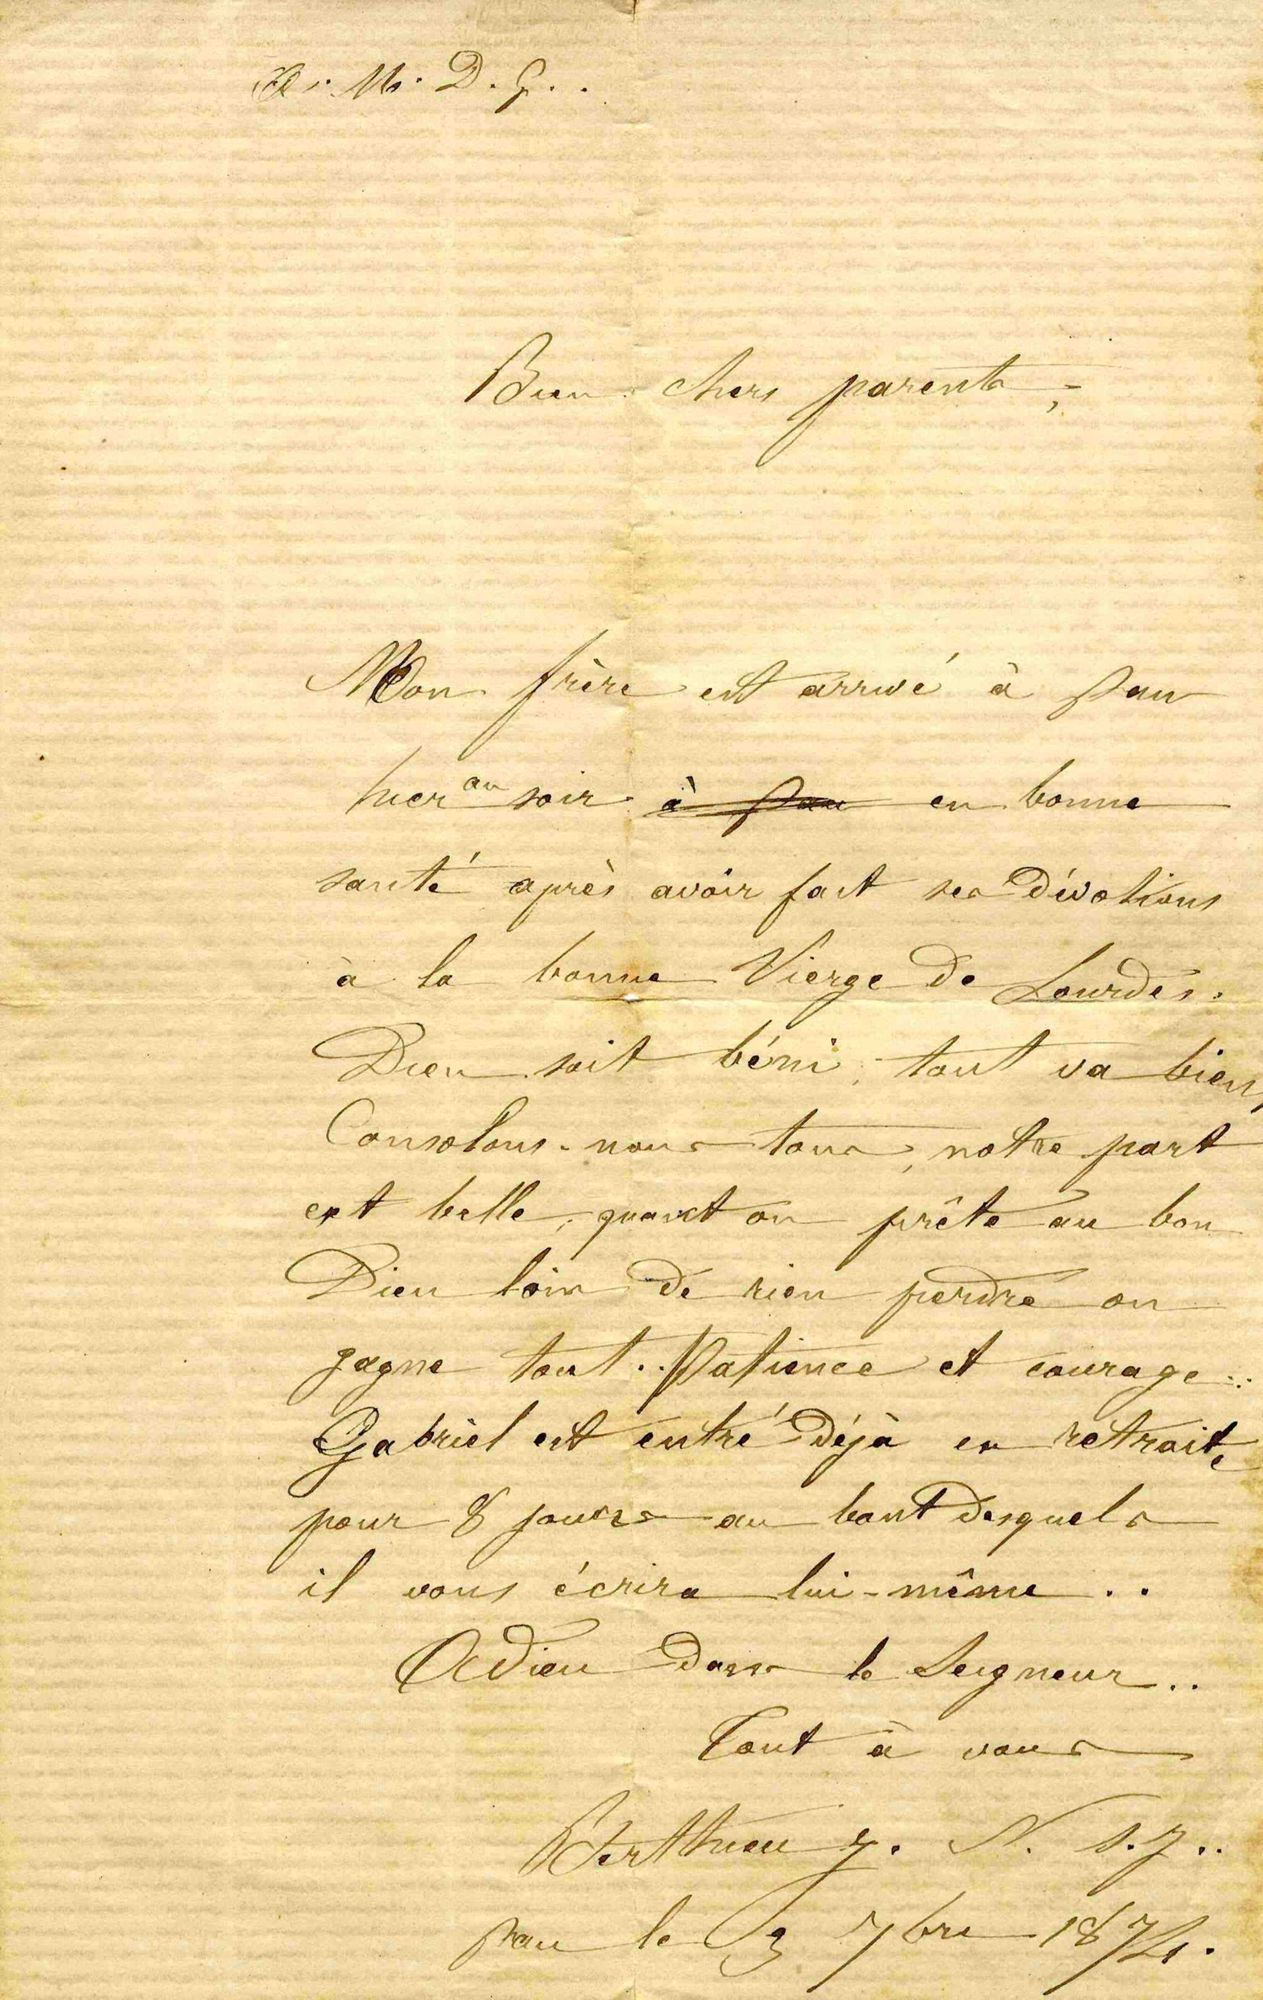 A. M. D. G..
Bien chers parents,
Mon frère est arrivé à Pau
hier au soir à Pau en bonne
santé après avoir fait ses dévotions
à la bonne Vierge de Lourdes.
Dieu soit béni, tout va bien,
Consolons-nous tous, notre part
est belle, quant on prête au bon
Dieu loin de rien perdre on
gagne tout.. Patience et courage..
Gabriel est entré déjà en retraite
pour 8 jours au bout desquels
il vous écrira lui-même..
Adieu dans le Seigneur..
Tout à vous
Berthieu J. N. S.J..
Pau le 3 7bre 1874.